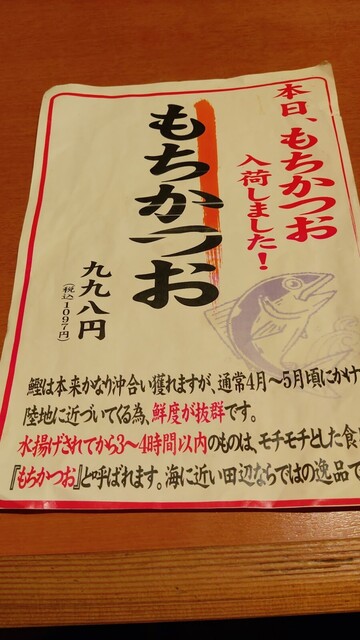 本日、もちかつお
入荷しました！
もちかつお
九九八円
(税込1097円)
鰹は本来かなり沖合い獲れますが、通常4月〜5月頃にかけ
陸地に近づいてる為、鮮度が抜群です。
水揚げされてから3〜4時間以内のものは、モチモチとした食
『もちかつお』と呼ばれます。海に近い田辺ならではの逸品で